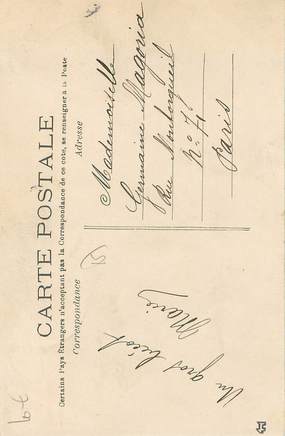 CARTE POSTALE
Certains Pays Étrangers n'acceptant pas la Correspondance de ce côté, se renseigner à la Poste
Correspondance
Adresse
Un gros bécot
Marie
15
Mademoiselle
Germaine Magoria
Rue Montorgueil
N° 71
Paris